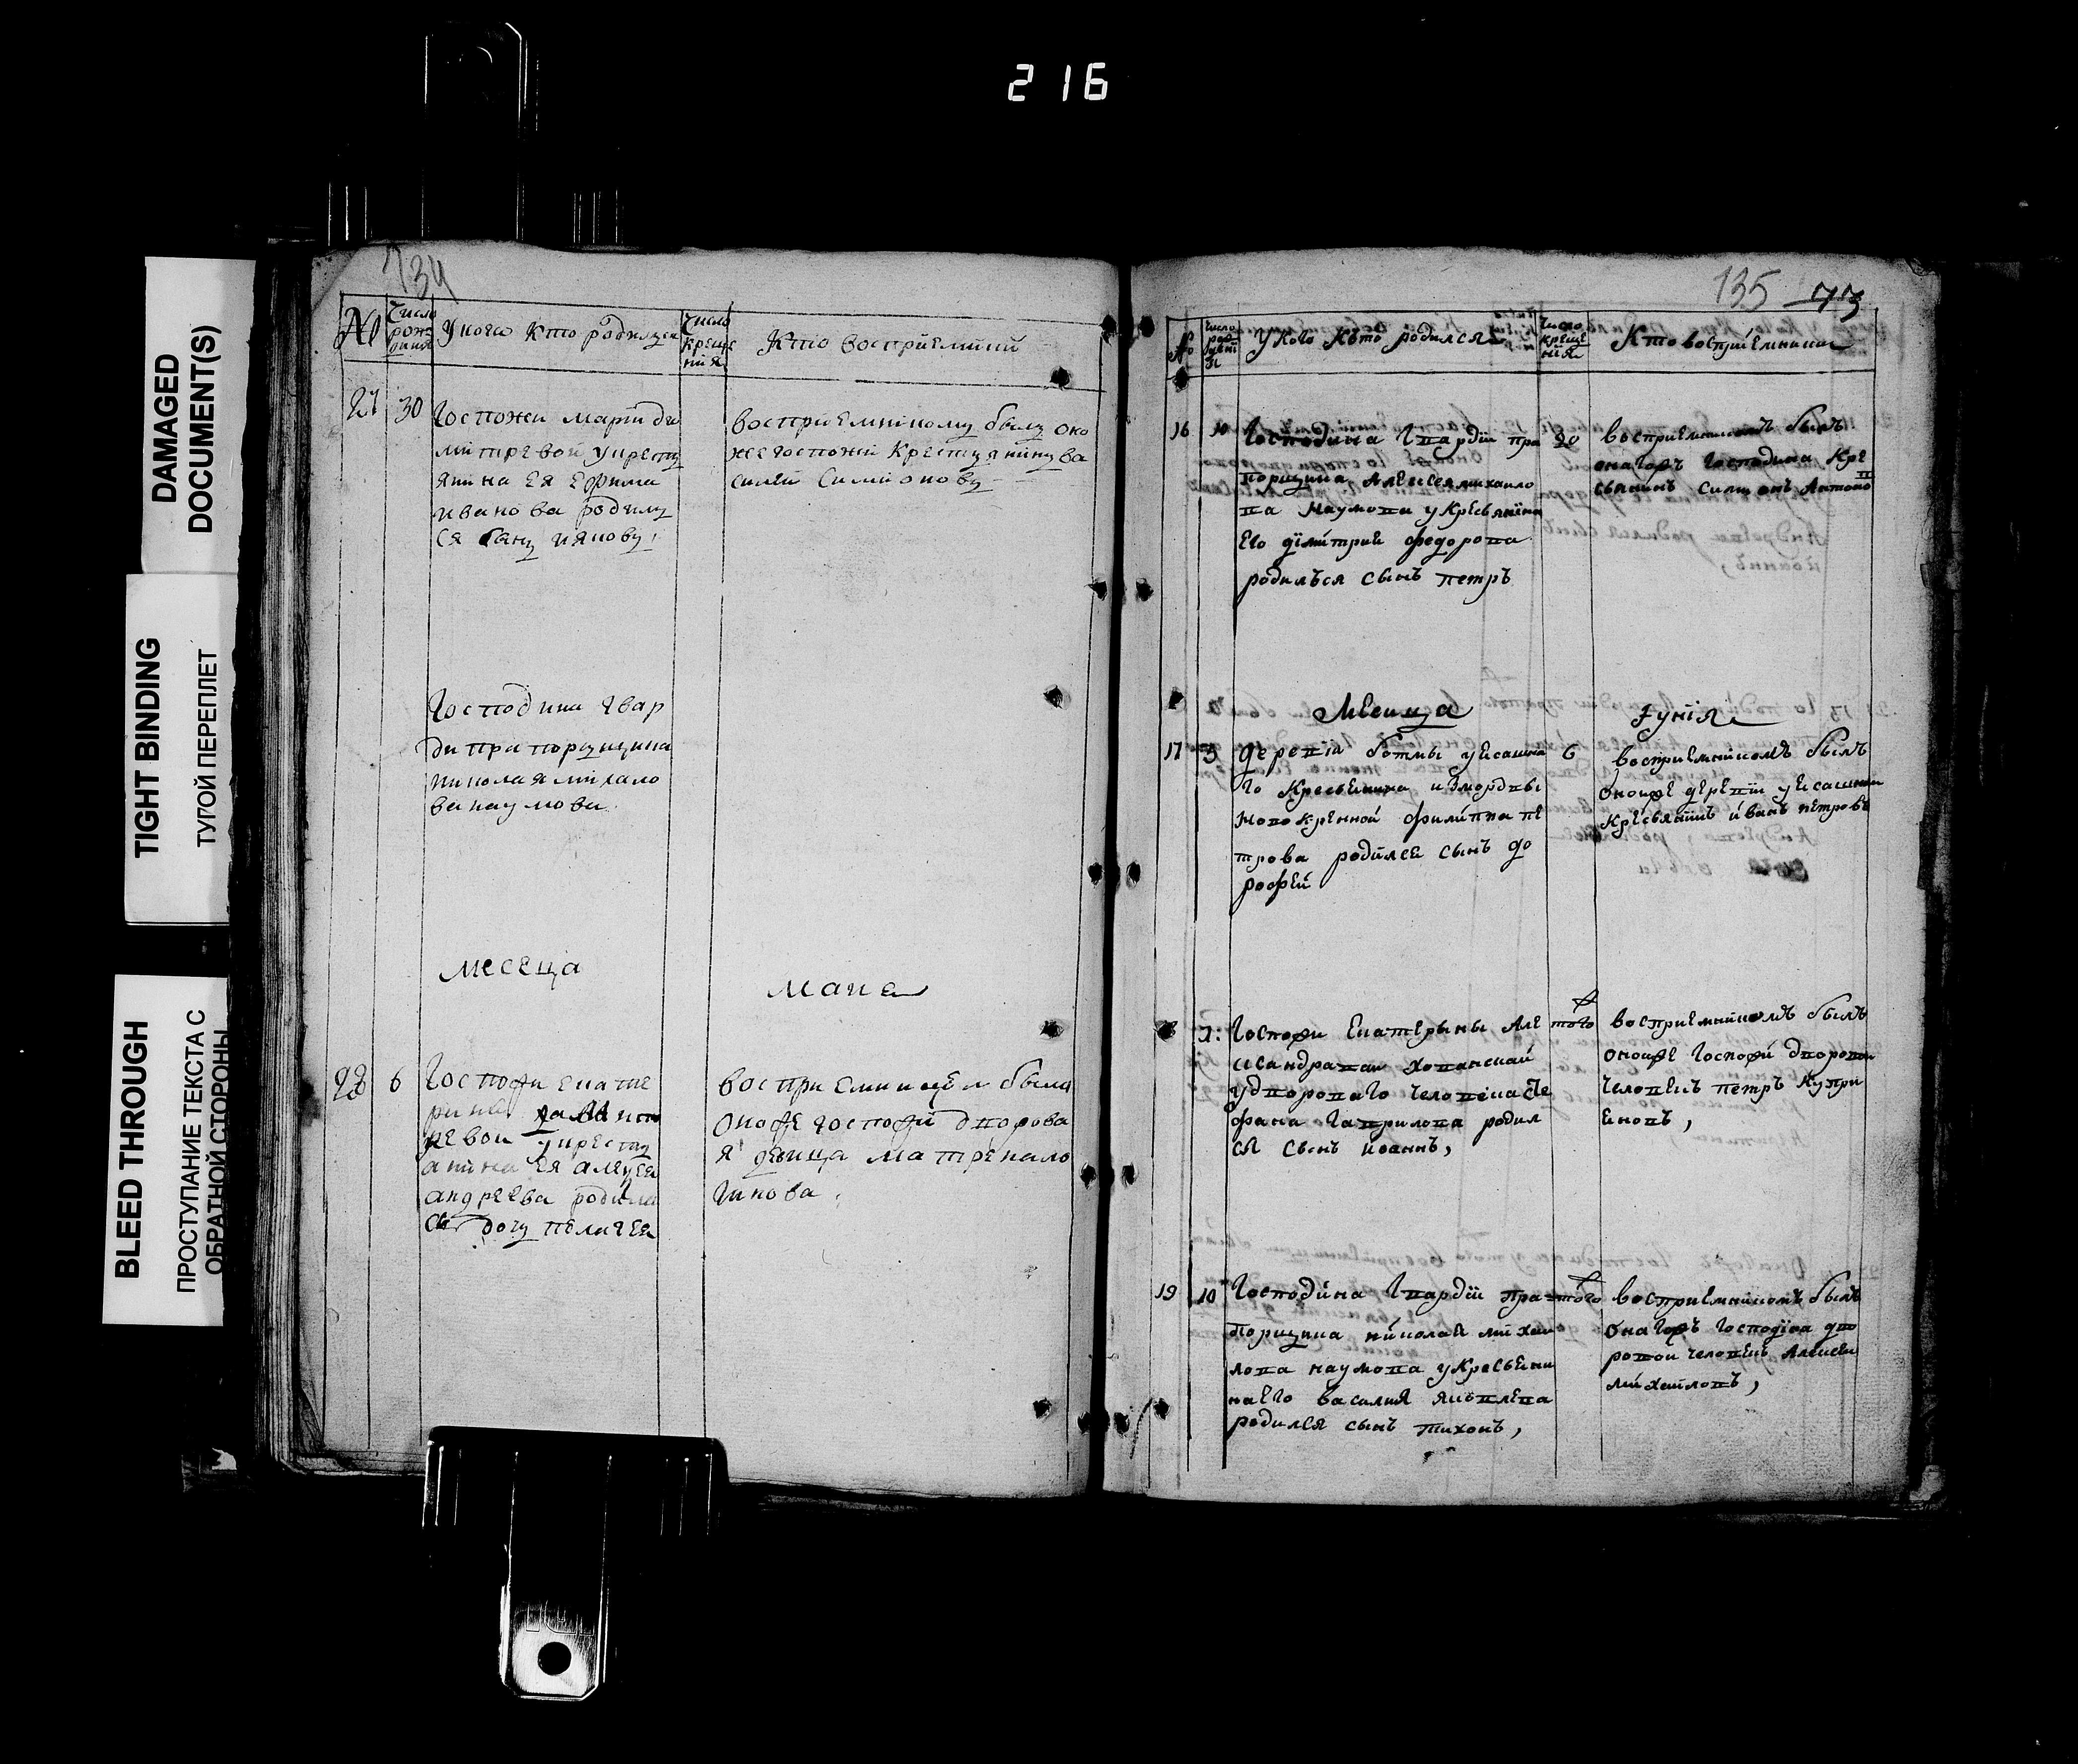 216
DAMAGED
DOCUMENT(S)
TIGHT BINDING
ТУГОЙ ПЕРЕПЛЕТ
BLEED THROUGH
ПРОСТУПАНИЕ ТЕКСТА С
ОБРАТНОЙ СТОРОНЫ
134
№
число
рож
дения
У кого кто родился
число
креще
нія
Кто восприемнии
27 30
госпожи маріи ди
митревои укрестц
янина ея ефима
иванова родилц
ся сынц
восприемникомц былц оно
же госпожи крестцянинц ва
силеи симионовц
господина гвар
ди прапорщика
николая михало
ва наумова
месеца
маиа
28 6
госпожи екате
рины
укрестц
янина ея алеѯея
андреева родила
сь дочь пелагея
восприемницеи была
оноже госпожи дворова
я девица матрена ло
гинова
135 73
№
число
У кого кьто родилсѧ
число
креще
нія
Кто воспріемники
16 10
господина гвардіи пра
порщика алеѯея михаило
ва наумова у кресьянина
его димитрия федорова
родилься сынъ петръ
20
восприемникомъ былъ
онагожъ господина кре
сьянинъ симионъ антоно
въ
Месица
Іуніѧ
17 5
деревіи ботмы у ясашна
го кресьянина изморды
новокренной филипа пе
трова родилсе сынъ до
рофей
6
восприемникомъ былъ
оноиже деревіи уясашнои
кресьянинъ иванъ петровъ
7:
госпожи екатерыны але
ѯандравои хованскаи
у дворовато человека сте
фана гаврилова родил
ся сынъ иоаннъ,
того
восприемникомъ былъ
оноиже госпожи дворовои
человекъ петръ купри
еновъ,
19 10
господина гвардіи пра
порщика николая михаи
лова наумова у кресьяни
на его василия яковлева
родился сынъ тихонъ,
того
восприемникомъ былъ
онагожъ господина дво
ровои человекъ алеѯеи
михаиловъ,